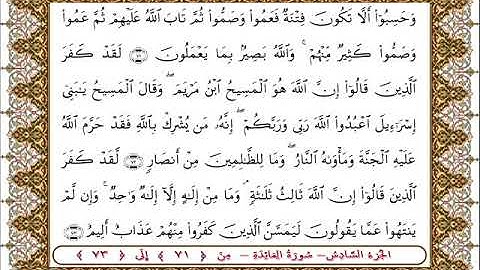 وَحَسِبُوٓا۟ أَلَّا تَكُونَ فِتْنَةٌ فَعَمُوا۟ وَصَمُّوا۟ ثُمَّ تَابَ ٱللَّهُ عَلَيْهِمْ ثُمَّ عَمُوا۟
وَصَمُّوا۟ كَثِيرٌ مِّنْهُمْ ۚ وَٱللَّهُ بَصِيرٌۢ بِمَا يَعْمَلُونَ ٧١ لَقَدْ كَفَرَ
ٱلَّذِينَ قَالُوٓا۟ إِنَّ ٱللَّهَ هُوَ ٱلْمَسِيحُ ٱبْنُ مَرْيَمَ ۖ وَقَالَ ٱلْمَسِيحُ يَـٰبَنِىٓ
إِسْرَٰٓءِيلَ ٱعْبُدُوا۟ ٱللَّهَ رَبِّى وَرَبَّكُمْ ۖ إِنَّهُۥ مَن يُشْرِكْ بِٱللَّهِ فَقَدْ حَرَّمَ ٱللَّهُ
عَلَيْهِ ٱلْجَنَّةَ وَمَأْوَىٰهُ ٱلنَّارُ ۖ وَمَا لِلظَّـٰلِمِينَ مِنْ أَنصَارٍ ٧٢ لَّقَدْ كَفَرَ
ٱلَّذِينَ قَالُوٓا۟ إِنَّ ٱللَّهَ ثَالِثُ ثَلَـٰثَةٍ ۘ وَمَا مِنْ إِلَـٰهٍ إِلَّآ إِلَـٰهٌ وَٰحِدٌ ۚ وَإِن لَّمْ
يَنتَهُوا۟ عَمَّا يَقُولُونَ لَيَمَسَّنَّ ٱلَّذِينَ كَفَرُوا۟ مِنْهُمْ عَذَابٌ أَلِيمٌ ٧٣
الجزء السادس - سورة المائدة - من ﴿ ٧١ ﴾ إلى ﴿ ٧٣ ﴾